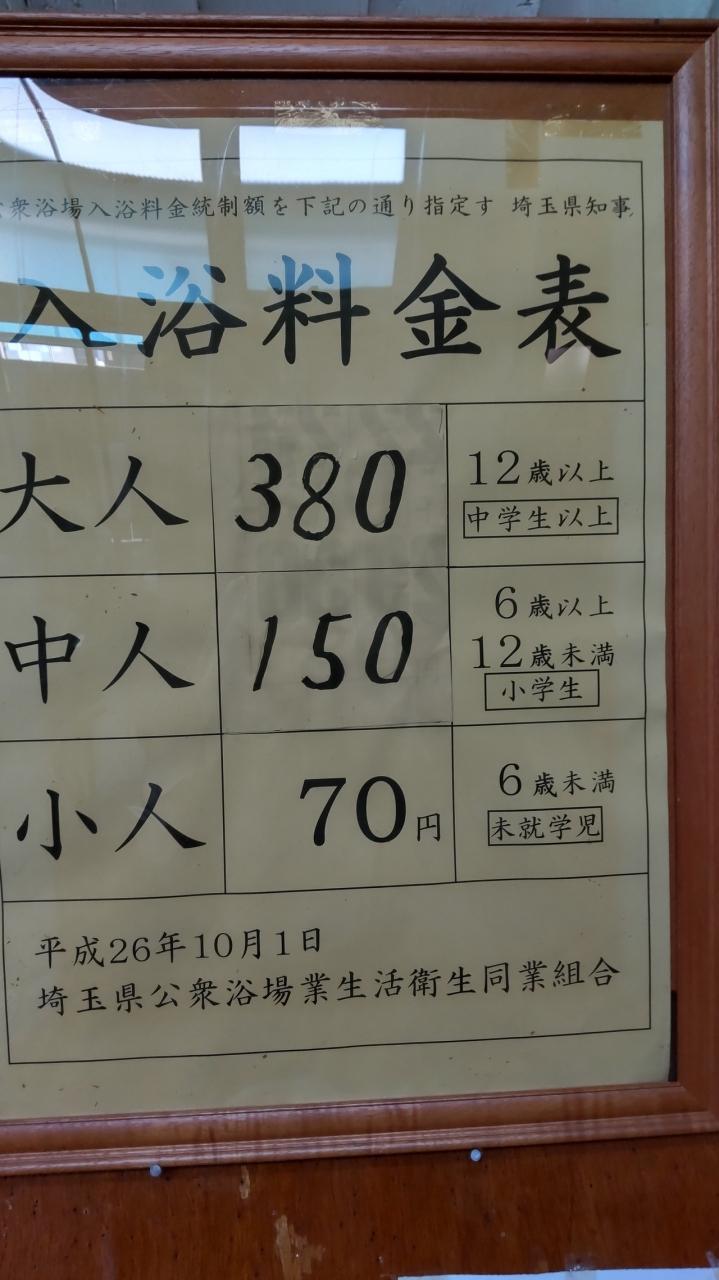 衆浴場入浴料金統制額を下記の通り指定す 埼玉県知事
入浴料金表
大人 380 12歳以上
中学生以上
中人 150 6歳以上
12歳未満
小学生
小人 70円 6歳未満
未就学児
平成26年10月1日
埼玉県公衆浴場業生活衛生同業組合